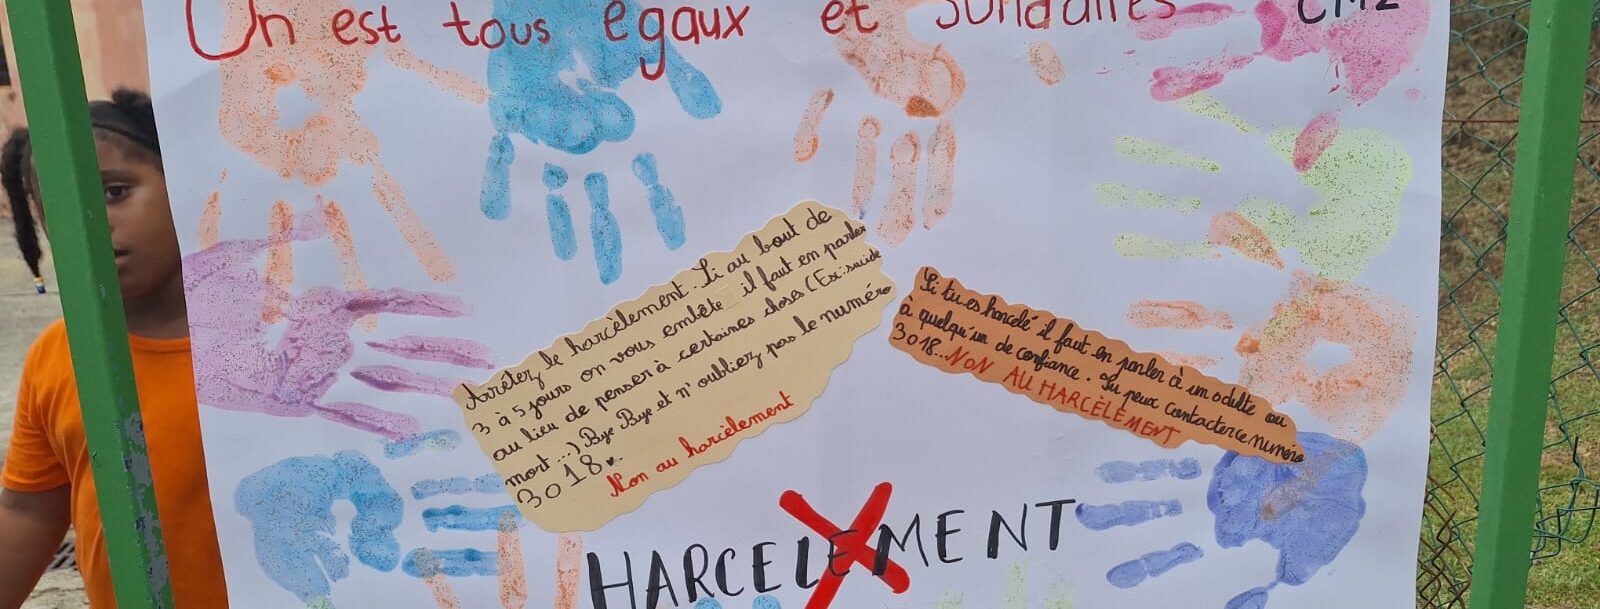 On est tous égaux et solidaires CM2
Arrêtez le harcèlement. Si au bout de
3 à 5 jours on vous embête il faut en parler
au lieu de penser à certaines choses (Ex: suicide
mort...) Bye Bye et n'oubliez pas le numéro
3018.
Non au harcèlement
Si tu es harcelé il faut en parler à un adulte ou
à quelqu'un de confiance. Tu peux contacter ce numéro
3018... NON AU HARCÈLEMENT
HARCELEMENT